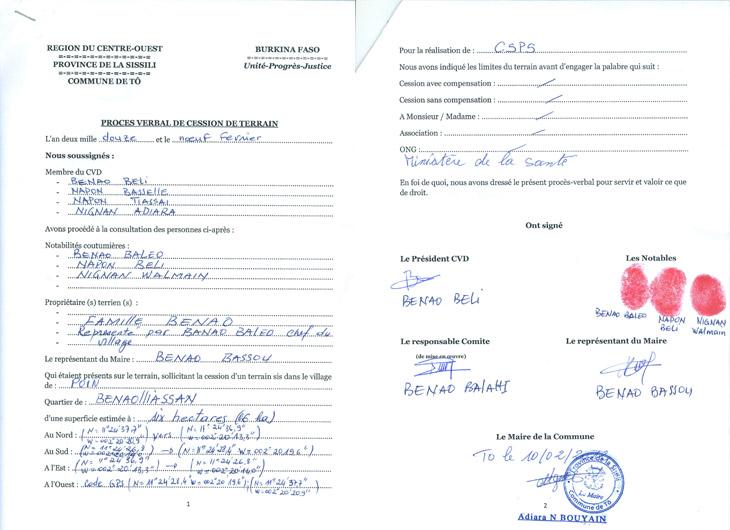 REGION DU CENTRE-OUEST
=-=-=-=-=-=-=-=-=-=
PROVINCE DE LA SISSILI
=-=-=-=-=-=-=-=-=-=
COMMUNE DE TÔ
BURKINA FASO
=-=-=-=-=-=-=-=
Unité-Progrès-Justice
PROCES VERBAL DE CESSION DE TERRAIN
L'an deux mille douze et le noeuf Fevrier
Nous soussignés :
Membre du CVD
- BENAO BELI
- NAPON BASSELLE
- NAPON TIASSAI
- NIGNAN ADIARA
Avons procédé à la consultation des personnes ci-après :
Notabilités coutumières :
- BENAO BALEO
- NAPON BELI
- NIGNAN WALMAIN
-
Propriétaire (s) terrien (s) :
- FAMILLE BENAO
- Représenté par BANAO BALEO chef du
- village
Le représentant du Maire : BENAO BASSOU
Qui étaient présents sur le terrain, sollicitant la cession d'un terrain sis dans le village
de : POIN
Quartier de : BENAOLIASSAN
d'une superficie estimée à : six hectares (06 ha)
Au Nord : (N= 11° 24' 37,7" W= 002° 20' 20,9") vers (N= 11° 24' 36,9" W= 002° 20' 13,3")
Au Sud : → (N= 11° 24' 28,4 W= 002° 20 19,6")
A l'Est : (N= 11° 24' 36,9" W= 002° 20' 13,3") → (N= 11° 24' 26,3 W= 002° 20' 14,0")
A l'Ouest : Code GPS (N= 11° 24' 28,4 W= 002° 20 19,6") ; (N= 11° 24' 37,7" W= 002° 20' 20,9")
1
Pour la réalisation de : CSPS
Nous avons indiqué les limites du terrain avant d'engager la palabre qui suit :
Cession avec compensation :
Cession sans compensation :
A Monsieur / Madame :
Association :
ONG :
Ministère de la santé
En foi de quoi, nous avons dressé le présent procès-verbal pour servir et valoir ce que
de droit.
Ont signé
Le Président CVD
BENAO BELI
Les Notables
BENAO BALEO
NAPON BELI
NIGNAN Walmain
Le responsable Comite
(de mise en œuvre)
BENAO BALAHI
Le représentant du Maire
BENAO BASSOU
Le Maire de la Commune
To le 10/02/
Province de la Sissili
Le Maire
Commune de Tô
2
Adiara N BOUYAIN